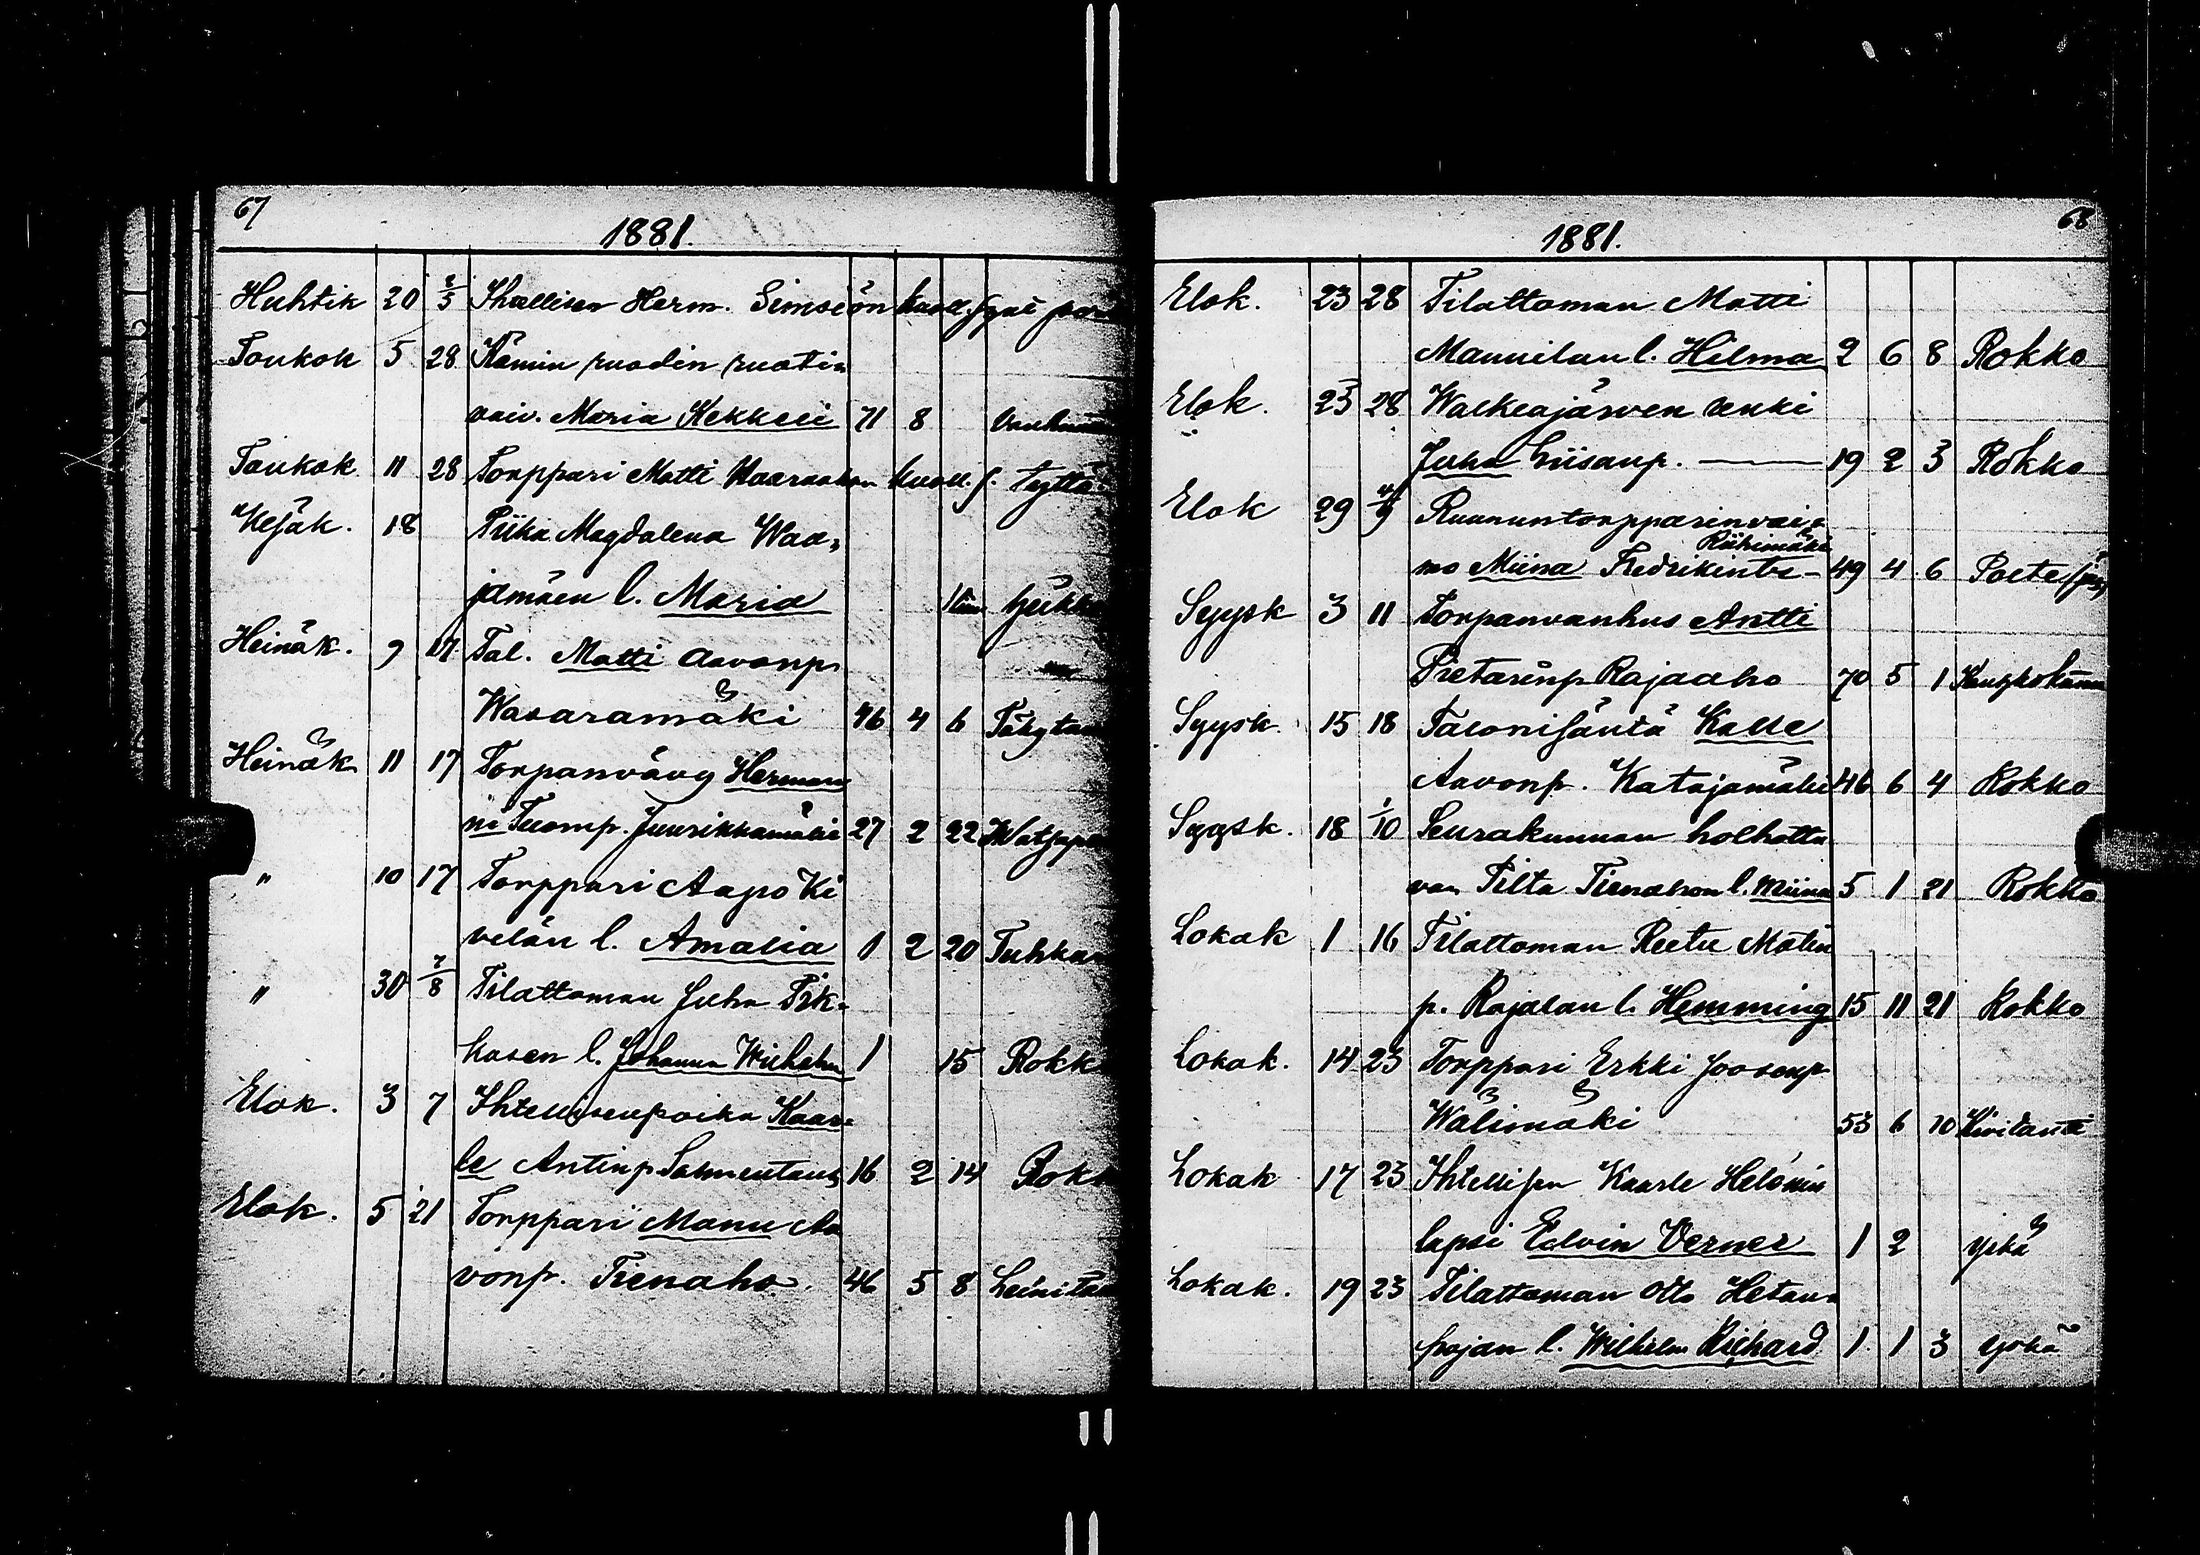 67
1881.
Huhtik 20 2/5 Ihtellisen Herm. Simseön kuoll. synt poi
Toukok 5 28 Kämin ruodin ruoti-
vaiv. Maria Kekkeli 71 8 Vanhuus
Toukok 11 28 Torppari Matti kuoll. s. tyttö
Kesäk. 18 Piika Magdalena Waa-
jamäen l. Maria
Heinäk. 9 17 Tal. Matti Aavonp.
Wasaramäki 46 4 6
Heinäk 11 17 Torpanvävy Herman
ni Tuomp. Juurikkamäki 27 2 22
" 10 17 Torppari Aapo Ki
velän l. Amalia 1 2 20 Tuhka
" 30 7/8 Tilattoman Juha Tik-
kasen l. Johannes Wilhelm 1 15 Rokk
Elok. 3 7 Ihtellisenpoika Kaar-
le Antinp 16 2 14 Rokk
Elok. 5 21 Torppari Manu Aa
vonp. Tienaho 46 5 8
68
1881.
Elok. 23 28 Tilattoman Matti
Mannilan l. Hilma 2 6 8 Rokko
Elok. 23 28 Walkeajärven renki
Juha Liisanp. — 19 2 3 Rokko
Elok 29 4/9 Ruununtorpparinvai-
Riihimäki
mo Miina Fredrikintr - 49 4 6
Syysk 3 11 Torpanvanhus Antti
Pietarinp. Rajaaho 70 5 1
Syysk. 15 18 Talonisäntä Kalle
Aavonp. Katajamäki 46 6 4 Rokko
Syysk. 18 1/10 Seurakunnan holhotta
van Tilta Tienahon l. Miina 5 1 21 Rokko
Lokak 1 16 Tilattoman Reetu Matin
p. Rajalan l. Hemming 15 11 21 Rokko
Lokak. 14 23 Torppari Erkki Joosenp
Wälimäki 53 6 10 Kivitauti
Lokak 17 23 Ihtellisen Kaarle Helsmin
lapsi Edvin Verner 1 2 Yskä
Lokak. 19 23 Tilattoman Otto Hetan-
pajan l. Wilhelm Richard 1 1 3 Yskä